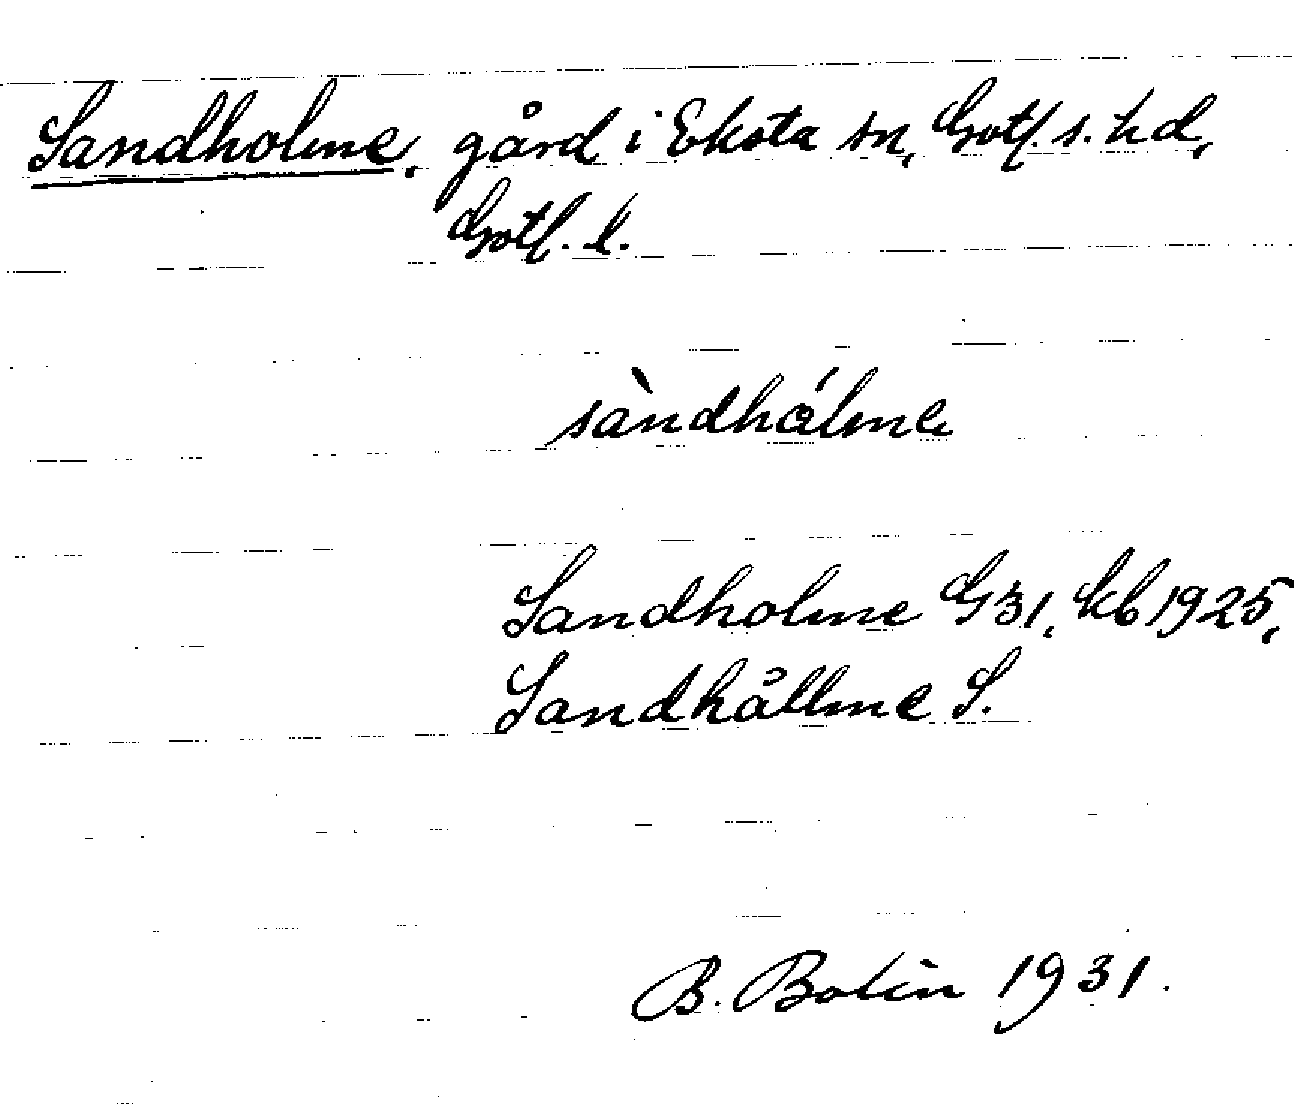 Sandholme, gård i Eksta sn, Gotl. s. hd,
Gotl. l.
sàndhålme
Sandholme G31, kb 1925,
Sandhållme S.
B. Bolin 1931.